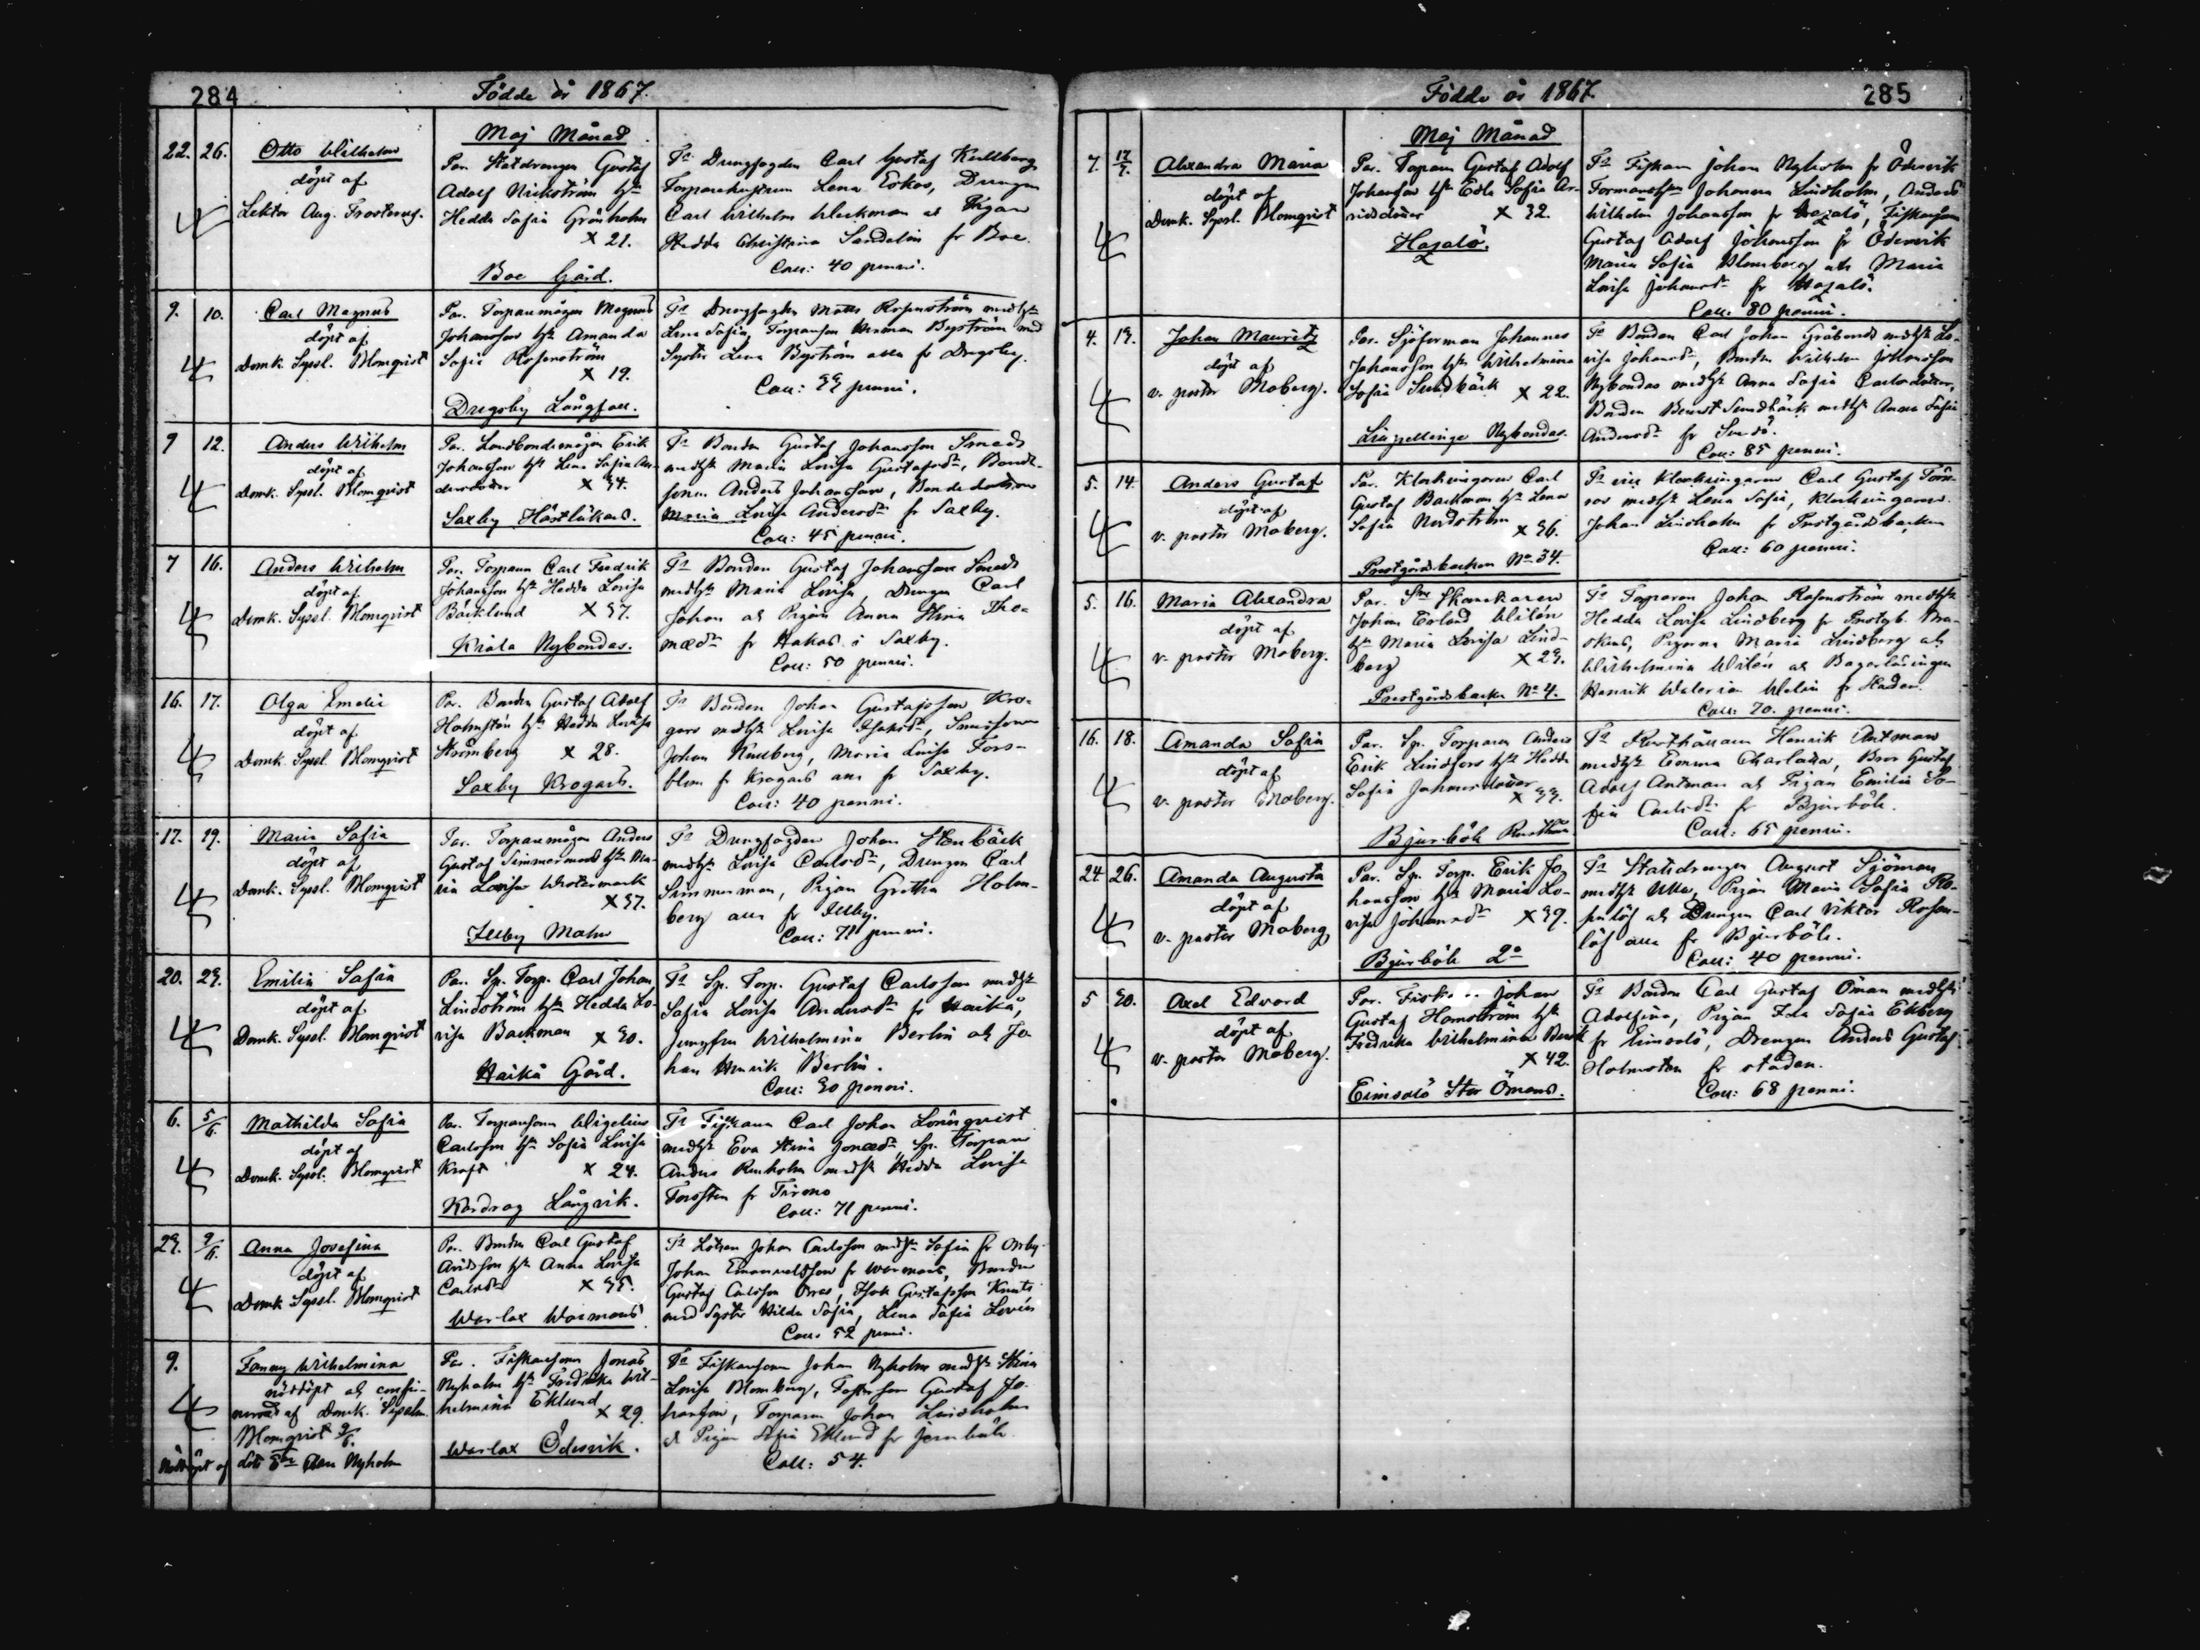 284
Födde år 1867.
Maj Månad
22. 26. Otto Wilhelm
döpt af
Lektor Aug. Frosterus.
Par. Statdrengen Gustaf
Adolf Nickström hst
Hedda Sofia Grönholm
x 21.
Boe Gård.
Fr Drengfogden Carl Gustaf Kullberg
Torparehustrun Lena Eskos, Drengen
Carl Wilhelm Weckman och Pigan
Hedda Christina Sandelin fr Boe.
Coll: 40 penni.
9. 10. Carl Magnus
döpt af
Domk. Syssl. Blomqvist
Par. Torparemågen Magnus
Johansson hst Amanda
Sofia Rosenström
x 19.
Drägsby Långfall.
Fr Drengfogden Matts Rosenström medhst
Lena Sofia, Torparson Herman Byström med
Syster Lena Byström alla fr Drägsby.
Coll: 33 penni.
9 12. Anders Wilhelm
döpt af
Domk. Syssl. Blomqvist
Par. Landbondemågen Erik
Johansson hst Lena Sofia An-
dersdotter x 34.
Saxby Hästlükars.
Fr Bonden Gustaf Johansson Smeds
medhst Maria Lovisa Gustafsdr, Bonde-
sonen Anders Johansson, Bondedottren
Maria Lovisa Andersdr fr Saxby.
Coll: 45 penni.
7 16. Anders Wilhelm
döpt af
Domk. Syssl. Blomqvist
Par. Torparen Carl Fredrik
Johansson hst Hedda Lovisa
Bäcklund x 37.
Kiala Nybondas.
Fr Bonden Gustaf Johansson Smeds
medhst Maria Lovisa, Drengen Carl
Johan och Pigan Anna Stina Tho-
masdr fr Hakas i Saxby.
Coll: 50 penni.
16. 17. Olga Emelie
döpt af
Domk. Syssl. Blomqvist
Par. Bonden Gustaf Adolf
Holmstén hst Hedda Lovisa
Strömberg x 28.
Saxby Krogars.
Fr Bonden Johan Gustafsson Kro-
gars medhst Lovisa Isaksdr,
Johan Kullberg, Maria Lovisa Fors-
blom fr Krogars alla fr Saxby.
Coll: 40 penni.
17. 19. Maria Sofia
döpt af
Domk. Syssl. Blomqvist
Par. Torparemågen Anders
Gustaf Simmerman hst Ma-
ria Lovisa Westermark
x 37.
Illby Malm
Fr Drengfogden Johan Stenbäck
medhst Lovisa Carlsdr, Drengen Carl
Simmerman, Pigan Gretha Holm-
berg alla fr Illby.
Coll: 71 penni.
20. 23. Emilia Sofia
döpt af
Domk. Syssl. Blomqvist
Par. Sp. Torp. Carl Johan
Lindström hst Hedda Lo-
visa Backman x 30.
Haikå Gård.
Fr Sp. Torp. Gustaf Carlsson medhst
Sofia Lovisa Andersdr fr Haikå,
Jungfru Wilhelmina Berlin och Jo-
han Henrik Berlin.
Coll: 30 penni.
6. 5/6. Mathilda Sofia
döpt af
Domk. Syssl. Blomqvist
Par. Torparsonen Wigelius
Carlsson hst Sofia Lovisa
Kraft x 24.
Kardrag Långvik.
Fr Fiskaren Carl Johan Lönnqvist
medhst Eva Stina Jonasdr Sp. Torparen
Anders Renholm medhst Hedda Lovisa
Forsstén fr Tirmo
Coll: 71 penni.
23. 9/6. Anna Josefina
döpt af
Domk. Syssl. Blomqvist
Par. Bonden Carl Gustaf
Aridsson hst Anna Lovisa
Carlsdr x 35.
Warlax Warmans
Fr Lotsen Johan Carlsson medhst Sofia fr Orrby
Johan Emanuelsson fr Warmans, Bonden
Gustaf Carlsson Orras, Isak Gustafsson Knuts
med Syster Hilda Sofia, Lena Sofia Lovén
Coll: 52 penni.
9. Fanny Wilhelmina
nöddöpt och confir-
merad af Domk. Sysslm.
Blomqvist 9/6.
Nöddöpt af
Par. Fiskaresonen Jonas
Nyholm hst Fredrika Wil-
helmina Eklund
x 29.
Warlax Ödesvik.
Fr Fiskaresonen Johan Nyholm medhst Stina
Lovisa Blomberg, Fostersonen Gustaf Jo-
hansson, Torparen Johan Lindholm
och Pigan Sofia Eklund fr Jernböle.
Coll: 54.
Födde år 1867.
285
Maj Månad
7. 17/7. Alexandra Maria
döpt af
Domk. Syssl. Blomqvist
Par. Torparen Gustaf Adolf
Johansson hst Edla Sofia Ar-
vidsdotter x 32.
Hasalö.
Fr Fiskaren Johan Nyholm fr Ödesvik
Johanna Lindholm, Anders
Wilhelm Johansson fr Hasalö, Fiskaresonen
Gustaf Adolf Johansson fr Ödesvik
Maria Sofia Blomberg och Maria
Lovisa Johansdr fr Hasalö.
Coll: 80 penni.
4. 13. Johan Mauritz
döpt af
v. pastor Moberg.
Par. Sjöforman Johannes
Johansson hst Wilhelmina
Sofia Sundbäck x 22.
Lillpellinge Nybondas.
Fr Bonden Carl Johan Gråbonds medhst Lo-
visa Johansdr, Bonden Wilhelm Johansson
Nybondas medhst Anna Sofia Carlsdotter,
Bonden Bernst Sundbäck medhst Anna Sofia
Andersdr fr Sundö.
Coll: 85 penni.
5. 14. Anders Gustaf
döpt af
v. pastor Moberg.
Par. Klockringaren Carl
Gustaf Backman hst Lena
Sofia Nordström x 36.
Prestgårdsbacken No 34.
Fr Klockringaren Carl Gustaf Törn-
ros medhst Lena Sofia, Klockringaren
Johan Lindholm fr Prestgårdsbacken
Coll: 60 penni.
5. 16. Maria Alexandra
döpt af
v. pastor Moberg.
Par. Skomakaren
Johan Erland Wilén
hst Maria Lovisa Lind-
berg x 23.
Prestgårdsbacka No 4.
Fr Torparen Johan Rosenström medhst
Hedda Lovisa Lindberg fr Prestgb. Ma-
skens, Pigorna Maria Lindberg och
Wilhelmina Wilén och Bagarlärlingen
Henrik Walerian Welin fr staden.
Coll: 70. penni.
16. 18. Amanda Sofia
döpt af
v. pastor Moberg.
Par. Sp. Torparen Anders
Erik Lindfors hst Hedda
Sofia Johansdotter
x 33.
Bjurböle Rusthåll
Fr Rusthållaren Henrik Antman
medhst Emma Charlotta, Bror Gustaf
Adolf Antman och Pigan Emilia So-
fia Carlsdr fr Bjurböle.
Coll: 65 penni.
24. 26. Amanda Augusta
döpt af
v. pastor Moberg
Par. Sp. Torp. Erik Jo-
hansson hst Maria Lo-
visa Johansdr x 39.
Bjurböle 2o
Fr Statdrengen August Sjöman
medhst Ulla, Pigan Maria Sofia Ro-
senlöf och Drengen Carl Viktor Rosen-
löf alla fr Bjurböle.
Coll: 40 penni.
5 30. Axel Edvard
döpt af
v. pastor Moberg.
Par. Fisk... Johan
Gustaf Holmström hst
Fredrika Wilhelmina Bäck
x 42.
Emsalö Stor Ömans.
Fr Bonden Carl Gustaf Öman medhst
Adolfina, Pigan Ida Sofia Ekberg
fr Emsalö, Drengen Anders Gustaf
Holmstén fr staden.
Coll: 68 penni.